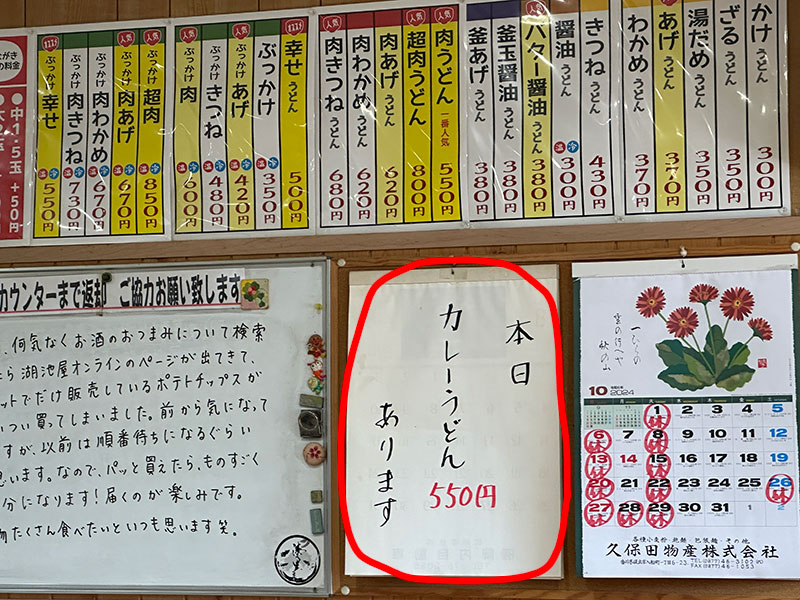 かけうどん 300円
ざるうどん 350円
湯だめうどん 350円
あげうどん 370円
わかめうどん 370円
きつねうどん 430円
醤油うどん 温 冷 300円
人気 バター醤油うどん 380円
釜玉醤油うどん 380円
釜あげうどん 380円
人気 肉うどん 一番人気 550円
人気 超肉うどん 800円
肉あげうどん 620円
肉わかめうどん 620円
肉きつねうどん 680円
幸せうどん 500円
ぶっかけうどん 温 冷 350円
人気 ぶっかけ あげ 温 冷 420円
ぶっかけ きつね 温 冷 480円
人気 ぶっかけ 肉 温 冷 600円
人気 ぶっかけ 超肉 温 冷 850円
人気 ぶっかけ 肉あげ 温 冷 670円
ぶっかけ 肉わかめ 温 冷 670円
ぶっかけ 肉きつね 温 冷 730円
ぶっかけ 幸せ 温 冷 550円
の料金
●中1.5玉+50円
カウンターまで返却 ご協力お願い致します
、何気なくお酒のおつまみについて検索
たら湖池屋オンラインのページが出てきて、
ットでだけ販売しているポテトチップスが
ついつい買ってしまいました。前から気になって
すが、以前は順番待ちになるぐらい
思います。なので、パッと買えたら、ものすごく
分になります!届くのが楽しみです。
物たくさん食べたいといつも思います笑。
本日
カレーうどん
550円
あります
10 2024
1休 2 3 4 5
6休 7 8休 9 10 11 12
13休 14 15休 16 17 18 19
20休 21 22休 23 24 25 26休
27休 28休 29休 30 31
各種小麦粉・乾麺・包装麺・その他
久保田物産株式会社